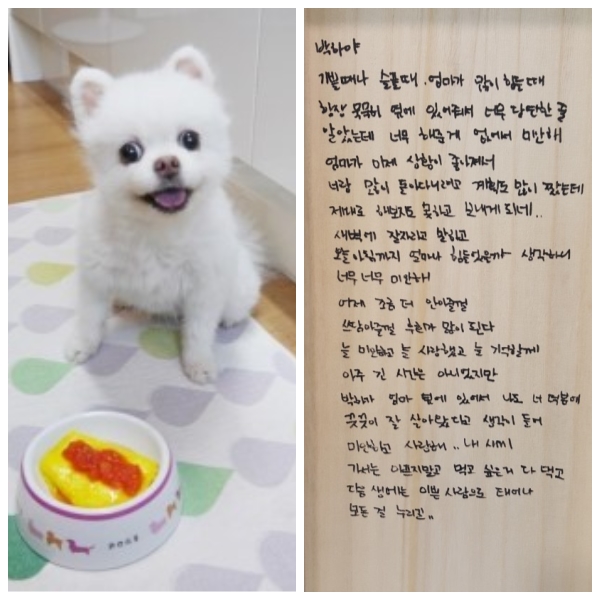 박하야
기쁠때나 슬플때, 엄마가 많이 힘들때
항상 묵묵히 옆에 있어줘서 너무 당연한 줄
알았는데 너무 해준게 없어서 미안해
엄마가 이제 상황이 좋아져서
너랑 많이 돌아다니려고 계획도 많이 짰는데
제대로 해보지도 못하고 보내게 되네..
새벽에 잘자라고 말하고
오늘 아침까지 얼마나 힘들었을까 생각하니
너무너무 미안해
어제 조금 더 안아줄걸
쓰담아줄걸 후회가 많이 된다
늘 미안하고 늘 사랑했고 늘 기억할게
아주 긴 시간은 아니었지만
박하가 엄마 옆에 있어서 나도 너 덕분에
꿋꿋이 잘 살아왔다고 생각이 들어
미안하고 사랑해.. 내 새끼
가서는 아프지말고 먹고 싶은거 다 먹고
다음 생에는 이쁜 사람으로 태어나
모든 걸 누리길..